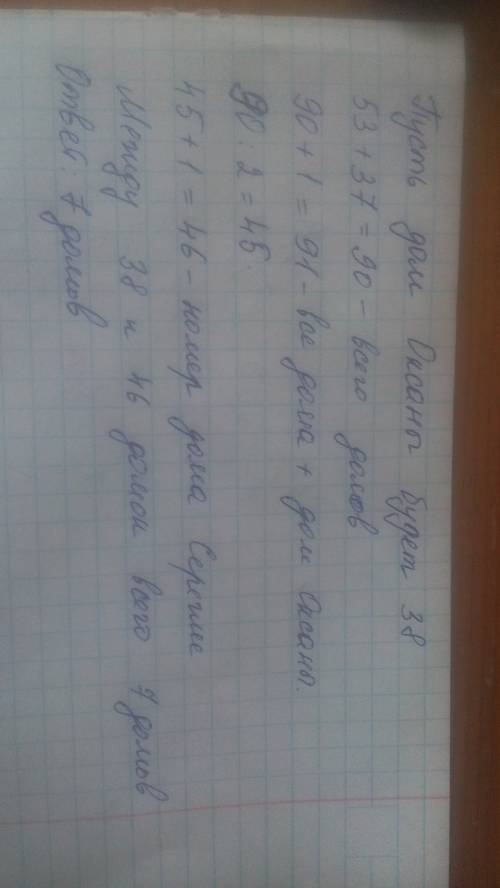 Пусть дом Оксаны будет 38
53 + 37 = 90 - всего домов
90 + 1 = 91 - все дома + дом Оксаны.
90 : 2 = 45.
45 + 1 = 46 - номер дома Серёжи
Между 38 и 46 домом всего 7 домов
Ответ: 7 домов